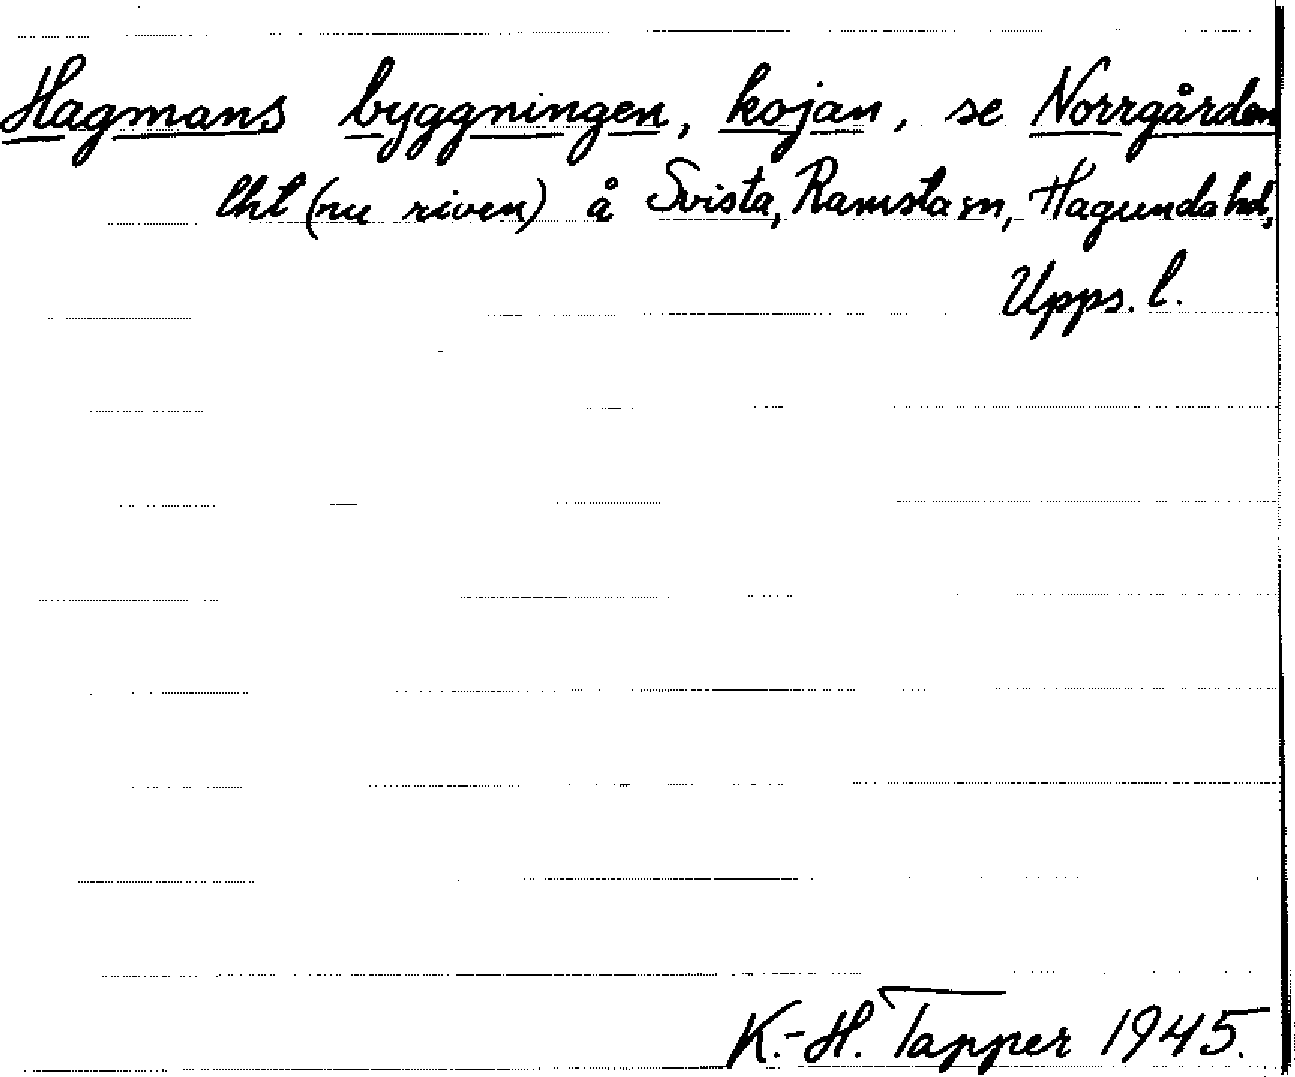 Hagmans byggningen, kojan, se Norrgården
lht (nu riven) å Svista, Ramsta sn, Hagunda hd,
Upps. l.
K.-H. Tapper 1945.